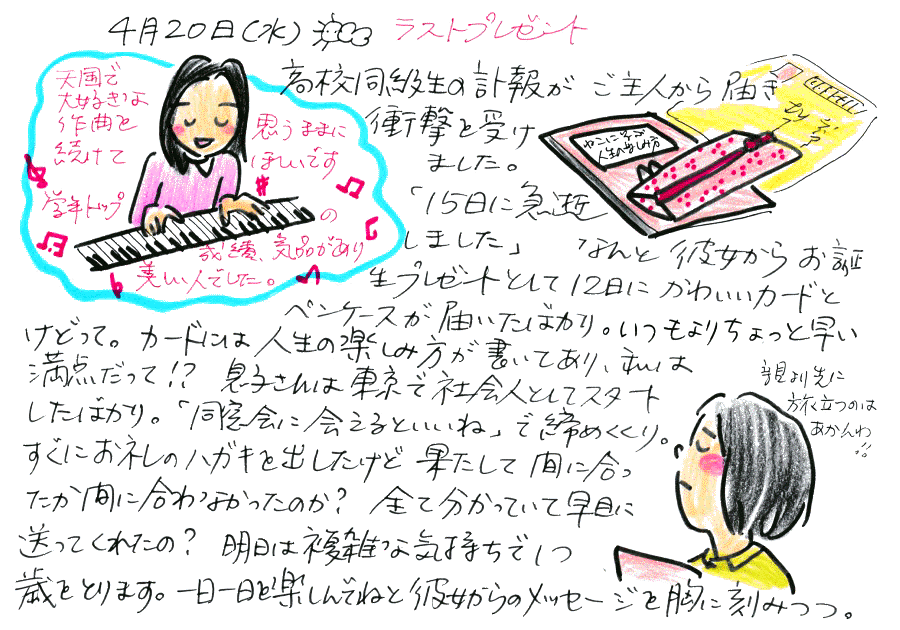 4月20日(水) ラストプレゼント
天国で
大好きな
作曲を
続けて
思うままに
ほしいです
学年トップの
成績、気品があり
美しい人でした。
高校同級生の訃報が ご主人から届き
衝撃を受け
ました。
「15日に急逝
しました」 なんと彼女からお誕
生プレゼントとして12日にかわいいカードと
ペンケースが届いたばかり。いつもよりちょっと早い
けどって。カードには人生の楽しみ方が書いてあり、私は
満点だって!? 息子さんは東京で社会人としてスタート
したばかり。「同窓会に会えるといいね」で締めくくり。
すぐにお礼のハガキを出したけど 果たして間に合っ
たか間に合わなかったのか? 全て分かっていて早目に
送ってくれたの? 明日は複雑な気持ちで1つ
歳をとります。一日一日を楽しんでねと彼女からのメッセージを胸に刻みつつ。
人生の楽しみ方
親より先に
旅立つのは
あかんわ!!